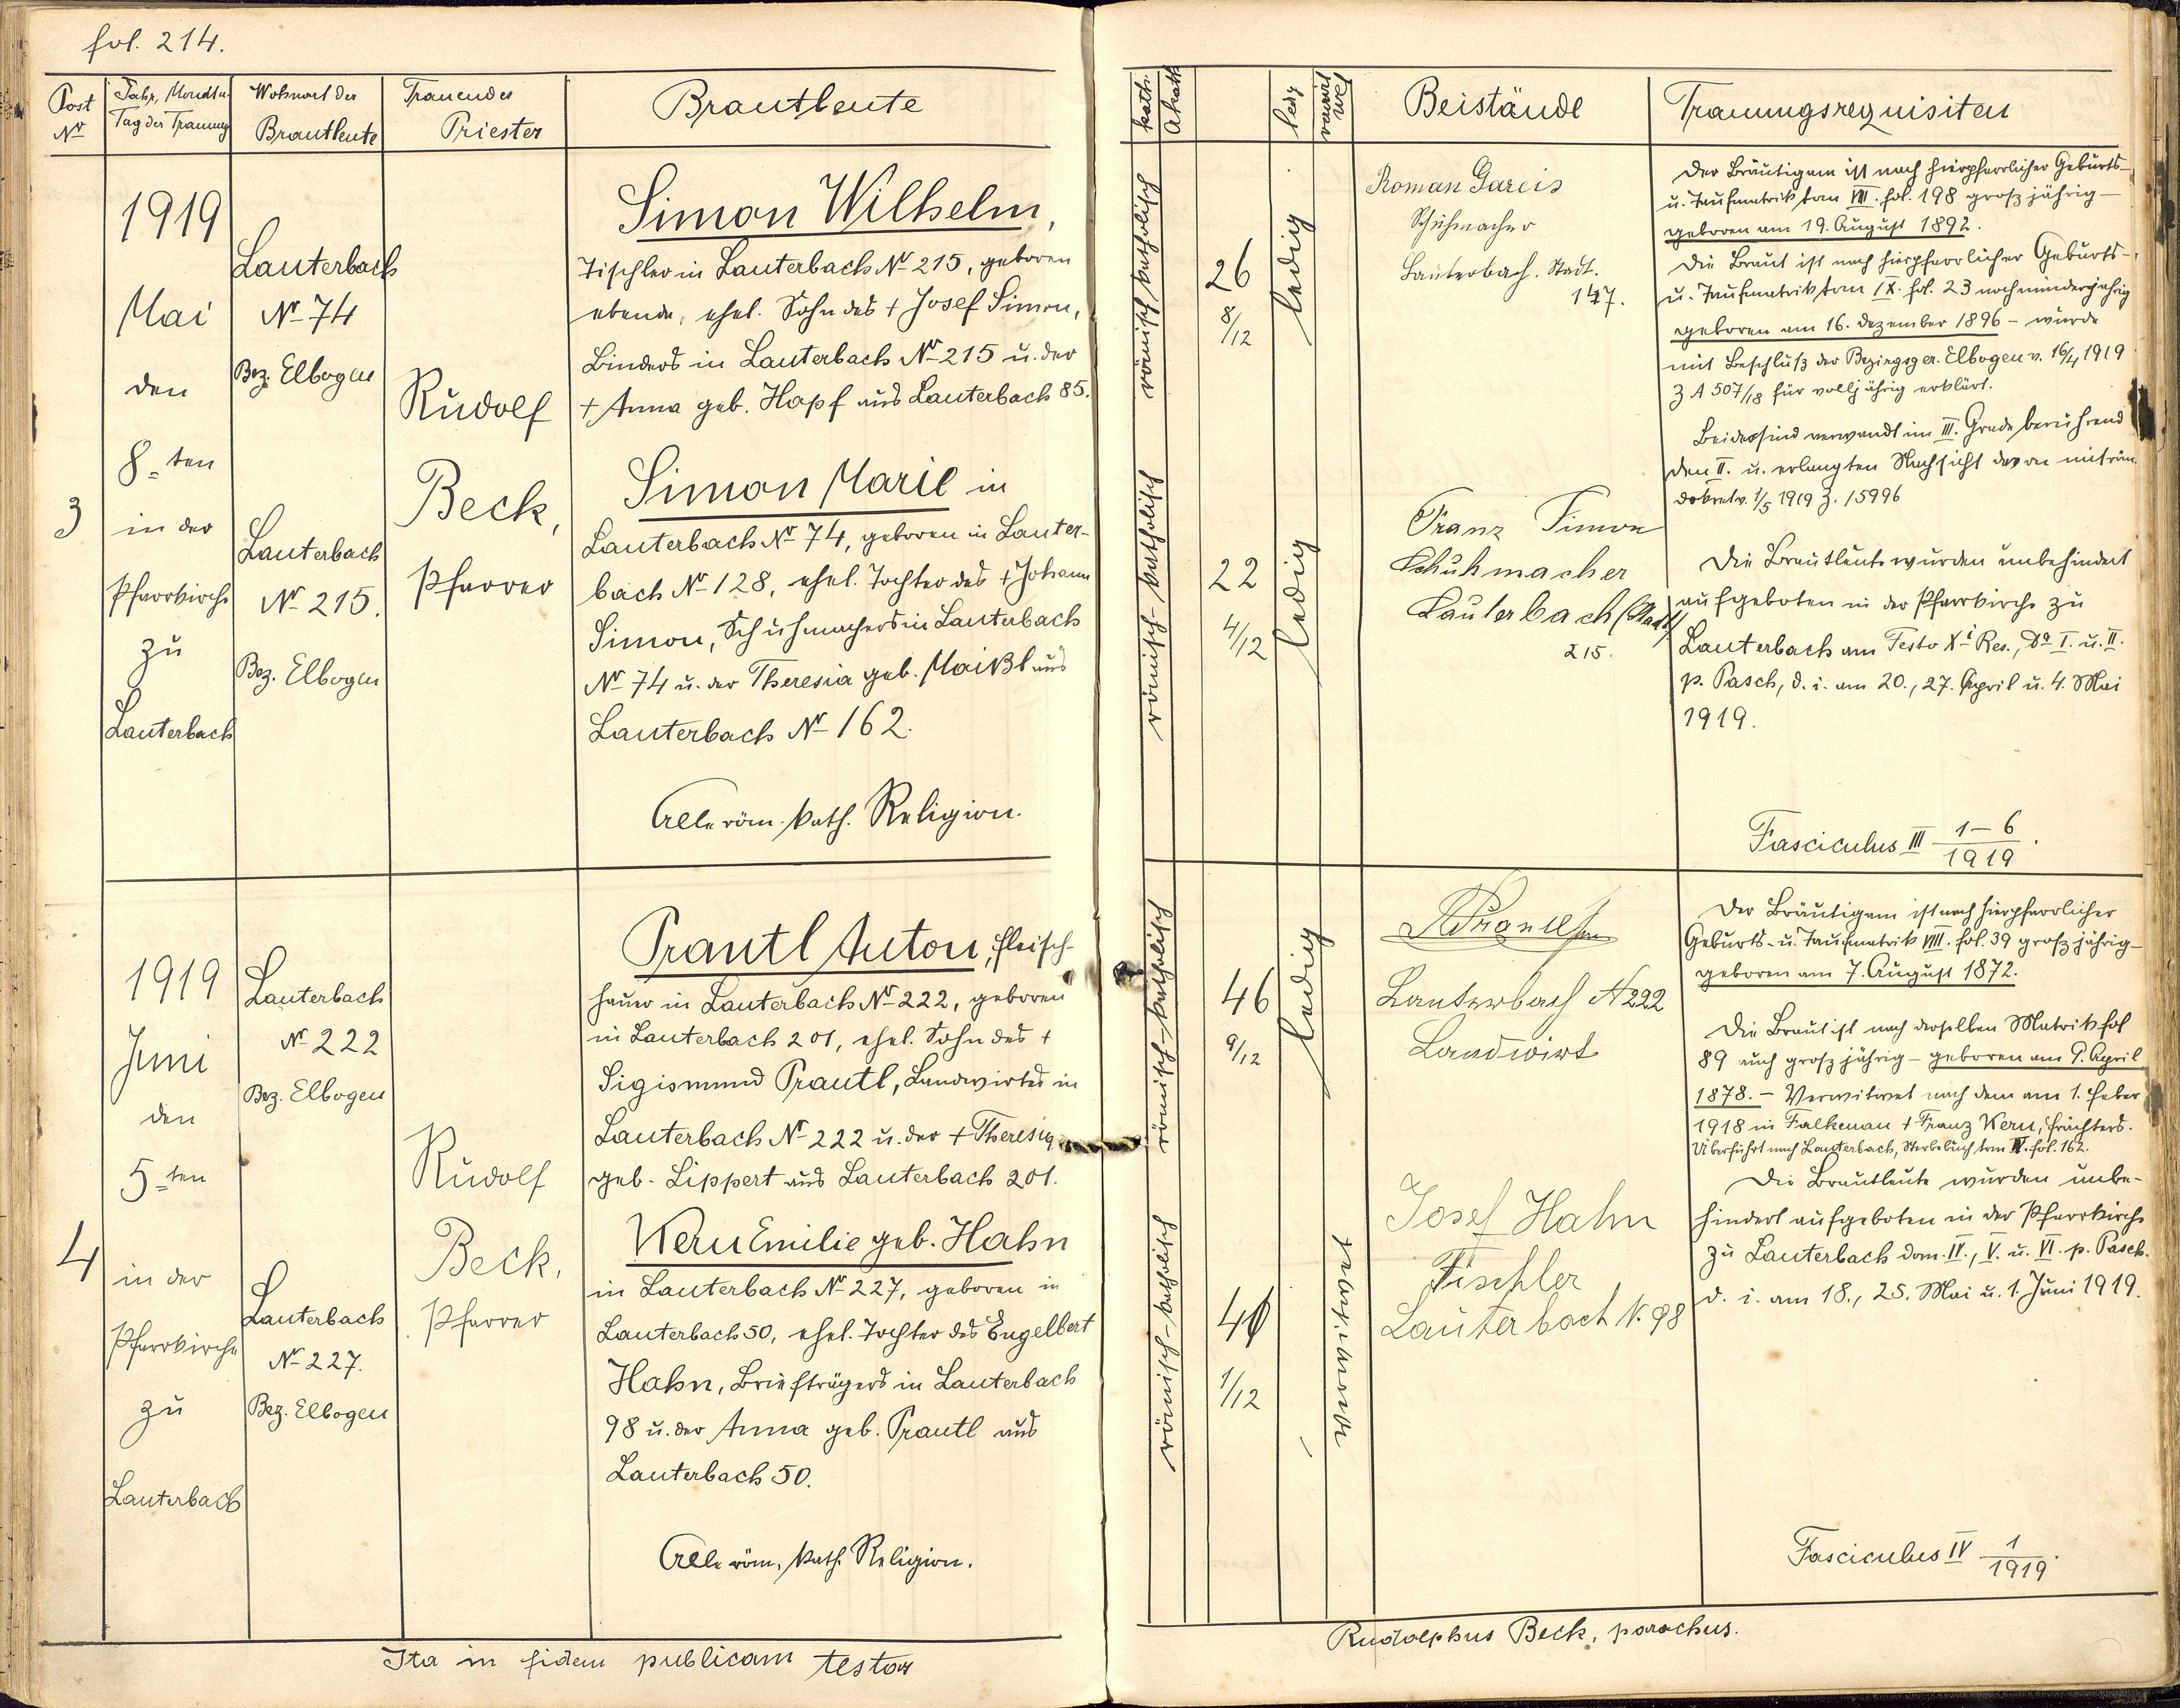 fol. 214.
Post Nr
Jahr, Monat u. Tag der Trauung
Wohnort der Brautleute
Trauender Priester
Brautleute
kath.
Akath.
ledig
verwitwet
Beistände
Trauungsrequisiten
3
1919
Mai
den
8-ten
in der
Pfarrkirche
zu
Lauterbach
Lauterbach
Nr 74
Bez. Elbogen
Lauterbach
Nr 215.
Bez. Elbogen
Rudolf
Beck,
Pfarrer
Simon Wilhelm,
Tischler in Lauterbach Nr 215, geboren
ebenda, ehel. Sohn des + Josef Simon,
Binders in Lauterbach Nr 215 u. der
+ Anna geb. Hapf aus Lauterbach 85.
Simon Marie in
Lauterbach Nr 74, geboren in Lauter-
bach Nr 128, ehel. Tochter des + Johann
Simon, Schuhmachers in Lauterbach
Nr 74 u. der Theresia geb. Maißl aus
Lauterbach Nr 162.
Alle röm. kath. Religion.
römisch katholisch
römisch-katholisch
26
8/12
22
4/12
ledig
ledig
Roman Gareis
Schuhmacher
Lauterbach. Stadt.
147.
Franz Simon
Schuhmacher
Lauterbach (Stadt)
215.
Der Bräutigam ist nach hierpfarrlicher Geburts-
u. Taufmatrik tom VIII. fol. 198 großjährig -
geboren am 19. August 1892.
Die Braut ist nach hierpfarrlicher Geburts-
u. Taufmatrik tom IX. fol. 23 noch minderjährig
geboren am 16. Dezember 1896 - wurde
mit Beschluß der Bezirksger. Elbogen v. 16/4 1919
Z A 507/18 für volljährig erklärt.
Beide sind verwandt im III. Grade berührend
den II. u. erlangten Nachsicht davon mit röm.
dekret v. 1/5 1919 Z. 15996
Die Brautleute wurden unbehindert
aufgeboten in der Pfarrkirche zu
Lauterbach am Festo Xi Res., Da I. u. II.
p. Pasch, d. i. am 20., 27. April u. 4. Mai
1919.
Fasciculus III 1-6/1919.
4
1919
Juni
den
5-ten
in der
Pfarrkirche
zu
Lauterbach
Lauterbach
Nr 222
Bez. Elbogen
Lauterbach
Nr 227.
Bez. Elbogen
Rudolf
Beck,
Pfarrer
Prantl Anton, Fleisch-
hauer in Lauterbach Nr 222, geboren
in Lauterbach 201, ehel. Sohn des +
Sigismund Prantl, Landwirtes in
Lauterbach Nr 222 u. der + Theresia
geb. Lippert aus Lauterbach 201.
Kern Emilie geb. Hahn
in Lauterbach Nr 227, geboren in
Lauterbach 50, ehel. Tochter des Engelbert
Hahn, Briefträgers in Lauterbach
98 u. der Anna geb. Prantl aus
Lauterbach 50.
Alle röm. kath. Religion.
römisch-katholisch
römisch-katholisch
46
9/12
1/12
ledig
verwitwet
Lauterbach N 222
Landwirt
Josef Hahn
Tischler
Lauterbach N. 98
Der Bräutigam ist nach hierpfarrlicher
Geburts- u. Taufmatrik VIII. fol. 39 großjährig -
geboren am 7. August 1872.
Die Braut ist nach derselben Matrik fol
89 auch großjährig - geboren am 9. April
1878. - Verwitwet nach dem am 1. Feber
1918 in Falkenau + Franz Kern,
Überführt nach Lauterbach, Sterbebuch tom IV. fol. 162.
Die Brautleute wurden unbe-
hindert aufgeboten in der Pfarrkirche
zu Lauterbach dom. IV., V. u. VI. p. Pasch.
d. i. am 18., 25. Mai u. 1. Juni 1919.
Fasciculus IV 1/1919.
Ita in fidem publicam testor
Rudolphus Beck, parochus.